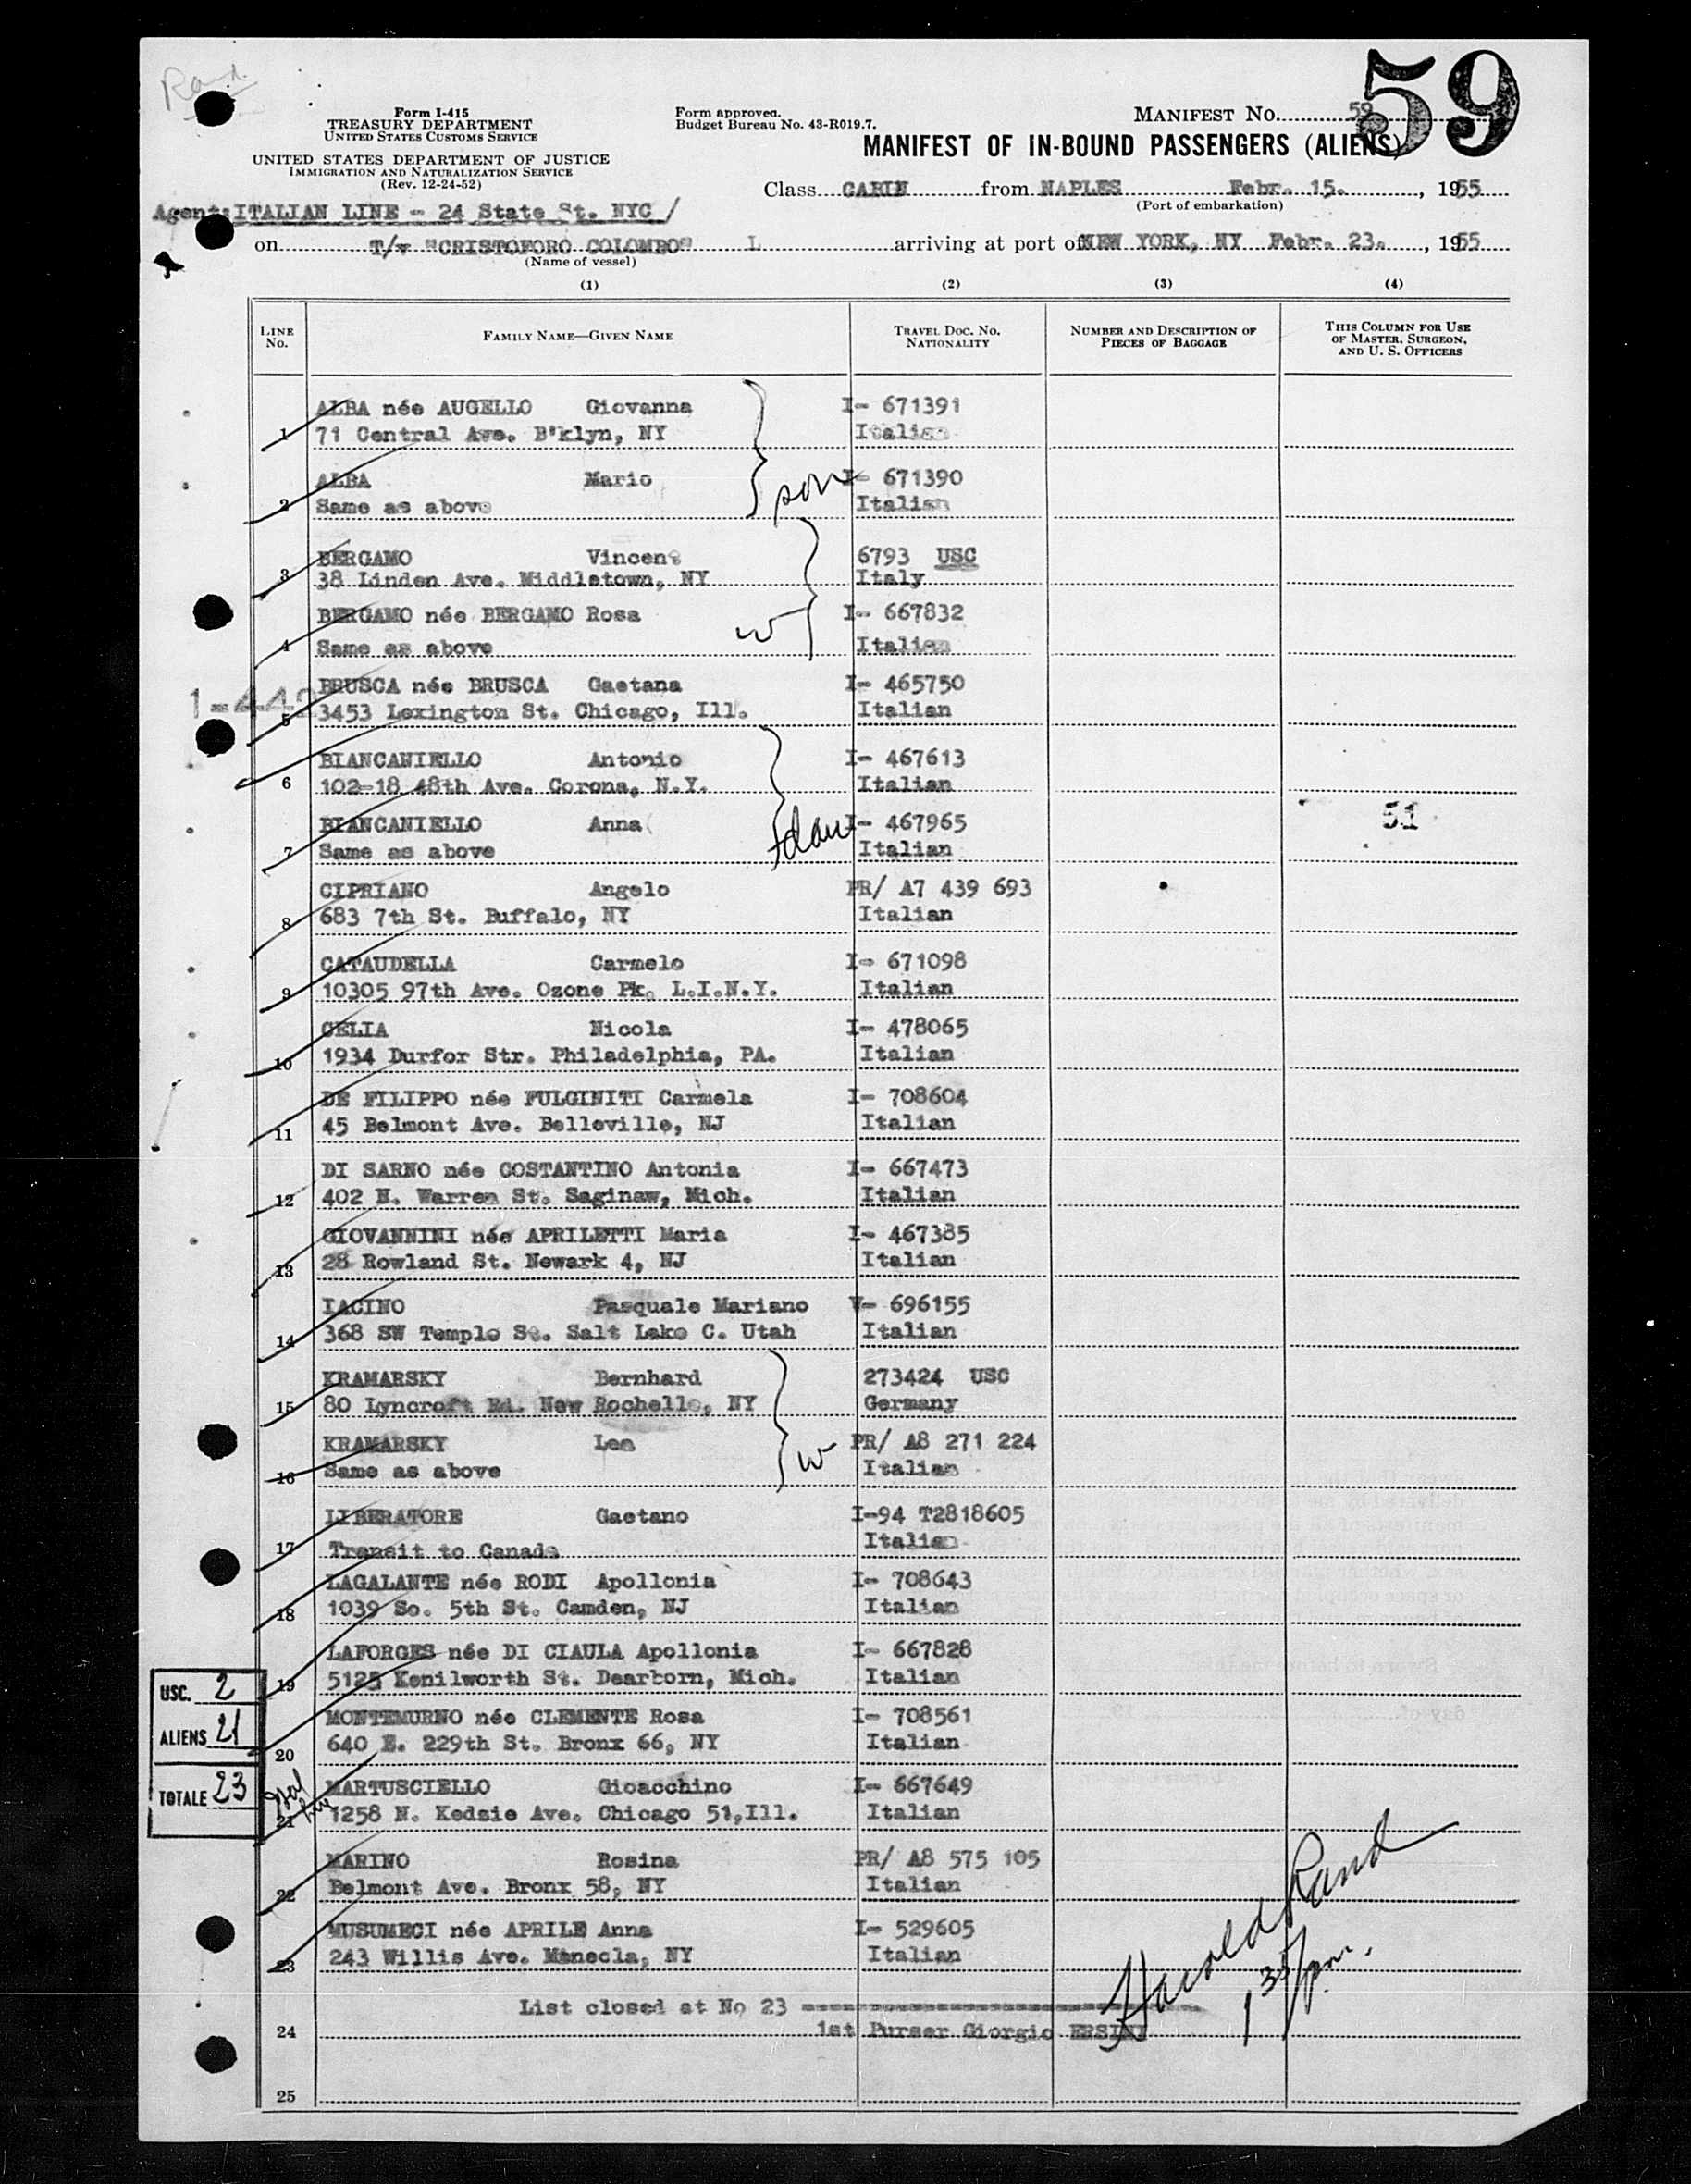 Rand
59
Form I-415
TREASURY DEPARTMENT
UNITED STATES CUSTOMS SERVICE
Form approved.
Budget Bureau No. 43-R019.7.
MANIFEST NO. 59
MANIFEST OF IN-BOUND PASSENGERS (ALIENS)
UNITED STATES DEPARTMENT OF JUSTICE
IMMIGRATION AND NATURALIZATION SERVICE
(Rev. 12-24-52)
Class CABIN from NAPLES Febr. 15. , 1955
(Port of embarkation)
Agent: ITALIAN LINE - 24 State St. NYC /
on T/v "CRISTOFORO COLOMBO" L arriving at port of NEW YORK, NY Febr. 23. , 1955
(Name of vessel)
(1) (2) (3) (4)
LINE No.
FAMILY NAME—GIVEN NAME
TRAVEL DOC. NO. NATIONALITY
NUMBER AND DESCRIPTION OF PIECES OF BAGGAGE
THIS COLUMN FOR USE OF MASTER, SURGEON, AND U. S. OFFICERS
ALBA née AUGELLO Giovanna I- 671391
1 71 Central Ave. B'klyn, NY Italian
ALBA Mario son I- 671390
2 Same as above Italian
BERGAMO Vincent 6793 USC
3 38 Linden Ave. Middletown, NY Italy
BERGAMO née BERGAMO Rosa w I- 667832
4 Same as above Italian
BRUSCA née BRUSCA Gaetana I- 465750
5 3453 Lexington St. Chicago, Ill. Italian
BIANCANIELLO Antonio I- 467613
6 102-18 48th Ave. Corona, N.Y. Italian
BIANCANIELLO Anna dau I- 467965 51
7 Same as above Italian
CIPRIANO Angelo PR/ A7 439 693
8 683 7th St. Buffalo, NY Italian
CATAUDELLA Carmelo I- 671098
9 10305 97th Ave. Ozone Pk. L.I.N.Y. Italian
CELIA Nicola I- 478065
10 1934 Durfor Str. Philadelphia, PA. Italian
DE FILIPPO née FULGINITI Carmela I- 708604
11 45 Belmont Ave. Belleville, NJ Italian
DI SARNO née COSTANTINO Antonia I- 667473
12 402 N. Warren St. Saginaw, Mich. Italian
GIOVANNINI née APRILETTI Maria I- 467385
13 28 Rowland St. Newark 4, NJ Italian
IACINO Pasquale Mariano V- 696155
14 368 SW Temple St. Salt Lake C. Utah Italian
KRAMARSKY Bernhard 273424 USC
15 80 Lyncroft Rd. New Rochelle, NY Germany
KRAMARSKY Lea w PR/ A8 271 224
16 Same as above Italian
LIBERATORE Gaetano I-94 T2818605
17 Transit to Canada Italian
LAGALANTE née RODI Apollonia I- 708643
18 1039 So. 5th St. Camden, NJ Italian
LAFORGES née DI CIAULA Apollonia I- 667828
19 5125 Kenilworth St. Dearborn, Mich. Italian
MONTEMURNO née CLEMENTE Rosa I- 708561
20 640 E. 229th St. Bronx 66, NY Italian
MARTUSCIELLO Gioacchino I- 667649
21 1258 N. Kedzie Ave. Chicago 51,Ill. Italian
MARINO Rosina PR/ A8 575 105
22 Belmont Ave. Bronx 58, NY Italian
MUSUMECI née APRILE Anna I- 529605
23 243 Willis Ave. Mineola, NY Italian
USC. 2
ALIENS 21
TOTALE 23
List closed at No 23
24 1st Purser Giorgio ERSINI
Harold Rand
1 35/pm.
25